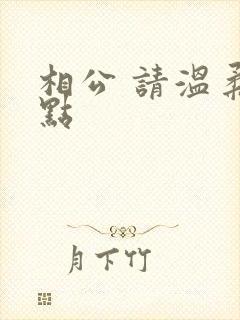 相公 請溫柔
點
月下竹